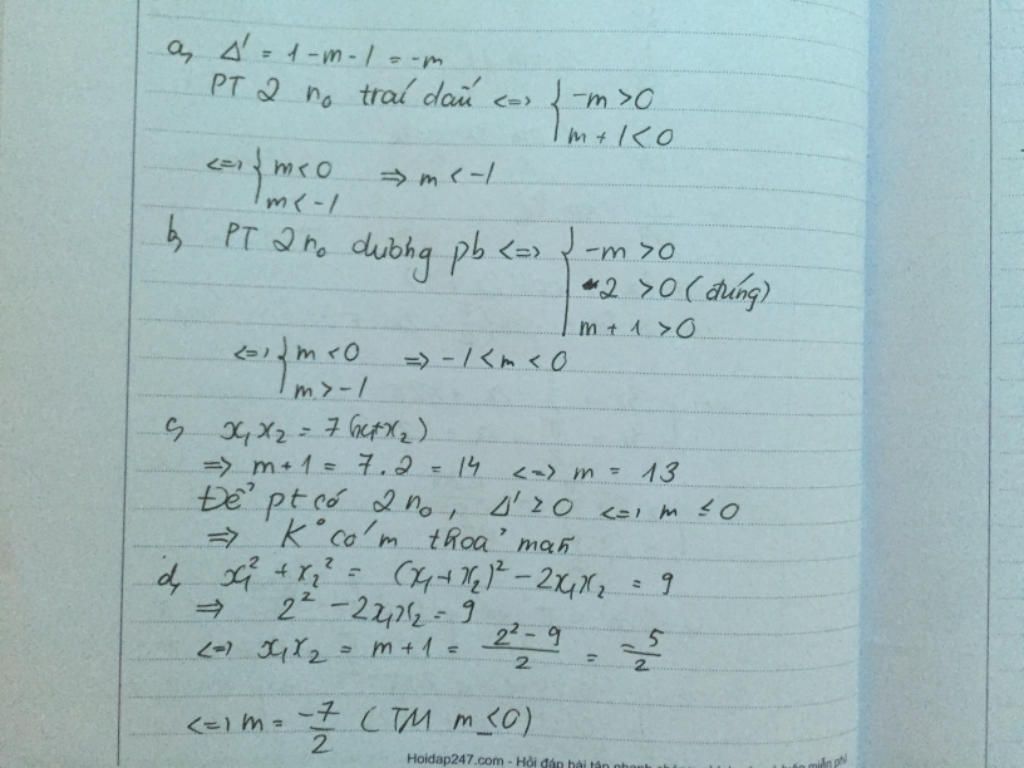 a, Δ' = 1 - m - 1 = -m
PT 2 no trái dấu <=> { -m > 0
m + 1 < 0
<=> { m < 0 => m < -1
m < -1
b, PT 2 no dương pb <=> { -m > 0
2 > 0 (đúng)
m + 1 > 0
<=> { m < 0 => -1 < m < 0
m > -1
c, x₁x₂ = 7(x₁+x₂)
=> m + 1 = 7.2 = 14 <=> m = 13
Để pt có 2 no, Δ' ≥ 0 <=> m ≤ 0
=> K° có m thoả mãn
d, x₁² + x₂² = (x₁ + x₂)² - 2x₁x₂ = 9
=> 2² - 2x₁x₂ = 9
<=> x₁x₂ = m + 1 = (2² - 9)/2 = -5/2
<=> m = -7/2 (TM m ≤ 0)
Hoidap247.com - Hỏi đáp bài tập nhanh miễn phí